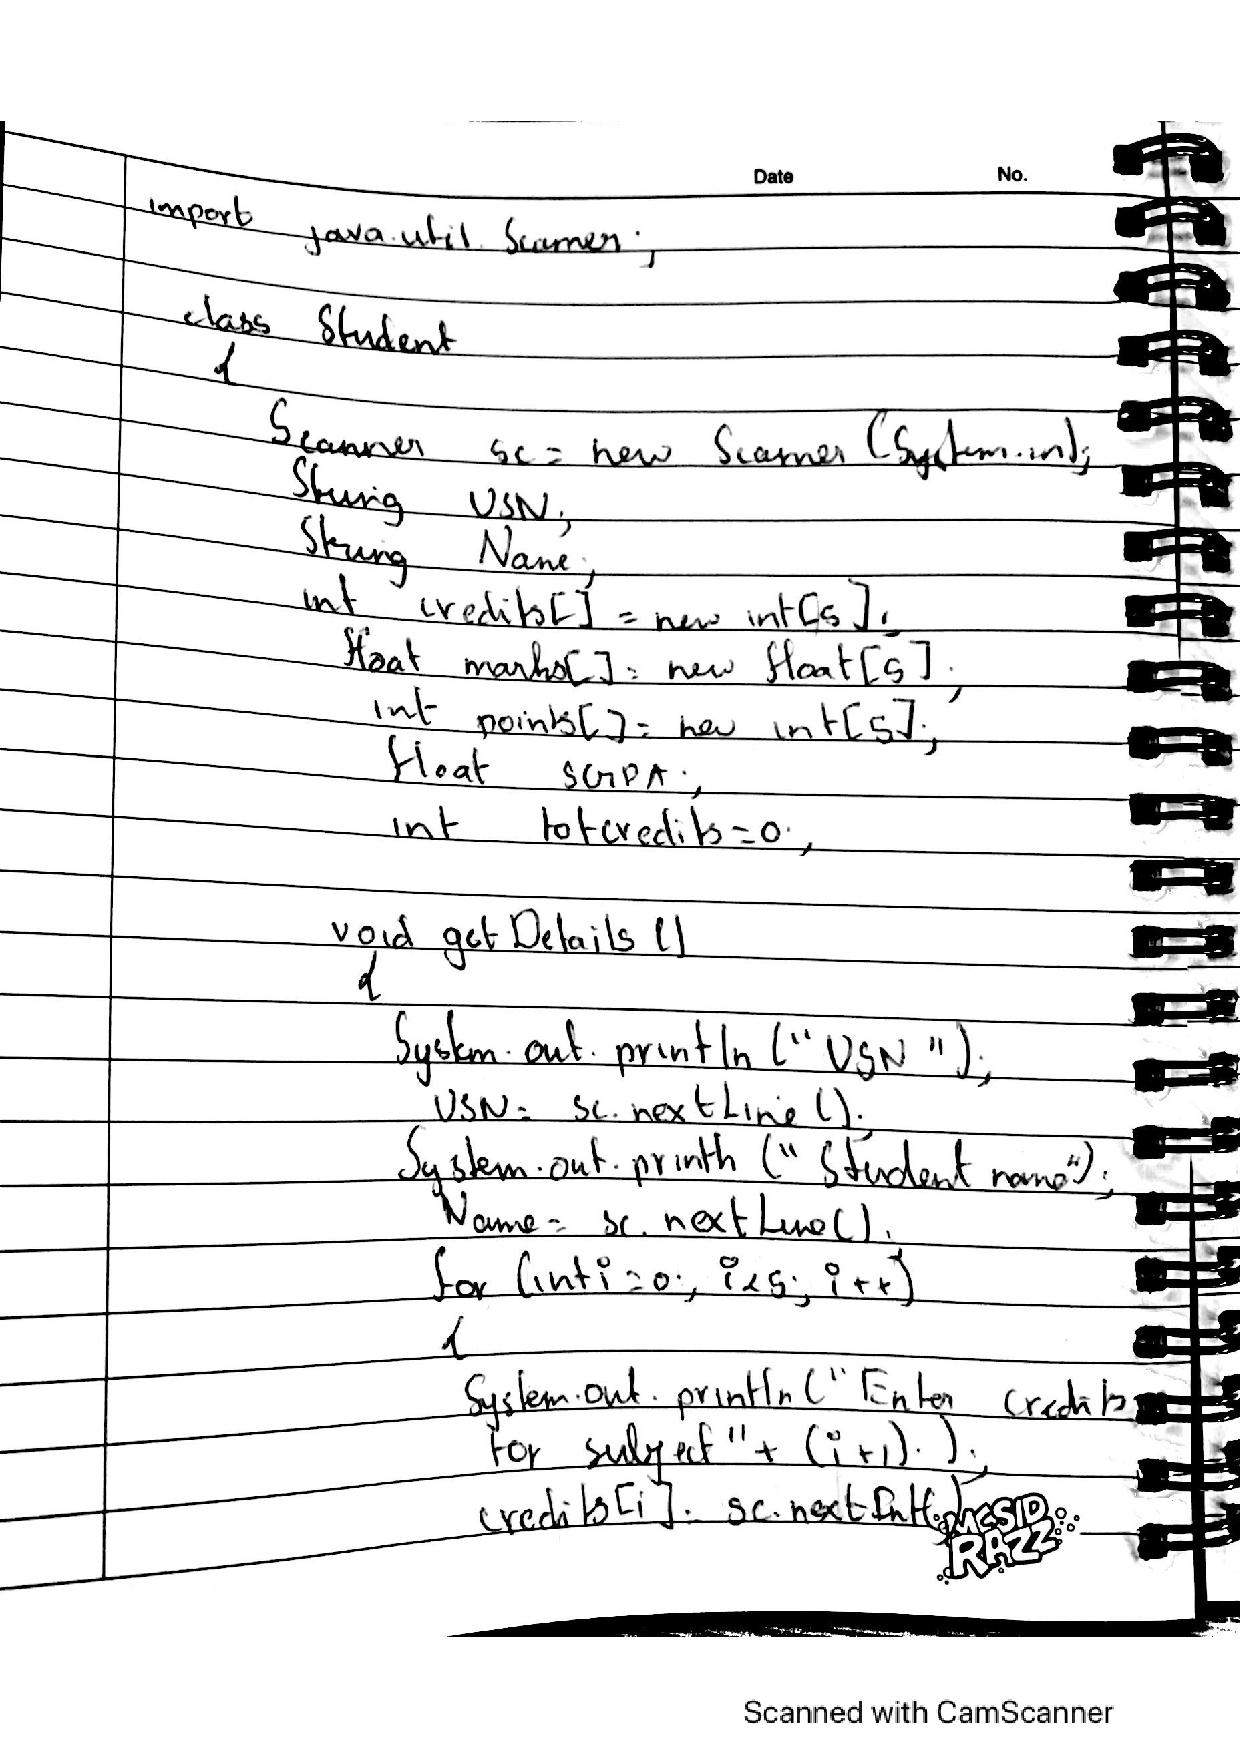 Date No.
import java.util.Scanner;
class Student
{
Scanner sc = new Scanner (System.in);
String USN;
String Name;
int credits[] = new int[5];
float marks[] = new float[5];
int points[] = new int[5];
float SGPA;
int totcredits=0;
void getDetails ()
{
System.out.println ("USN");
USN= sc.nextLine();
System.out.println ("Student name");
Name= sc.nextLine();
for (int i=0; i<5; i++)
{
System.out.println("Enter credits
for subject"+ (i+1));
credits[i]= sc.nextInt()
MCSID
RAZZ
Scanned with CamScanner